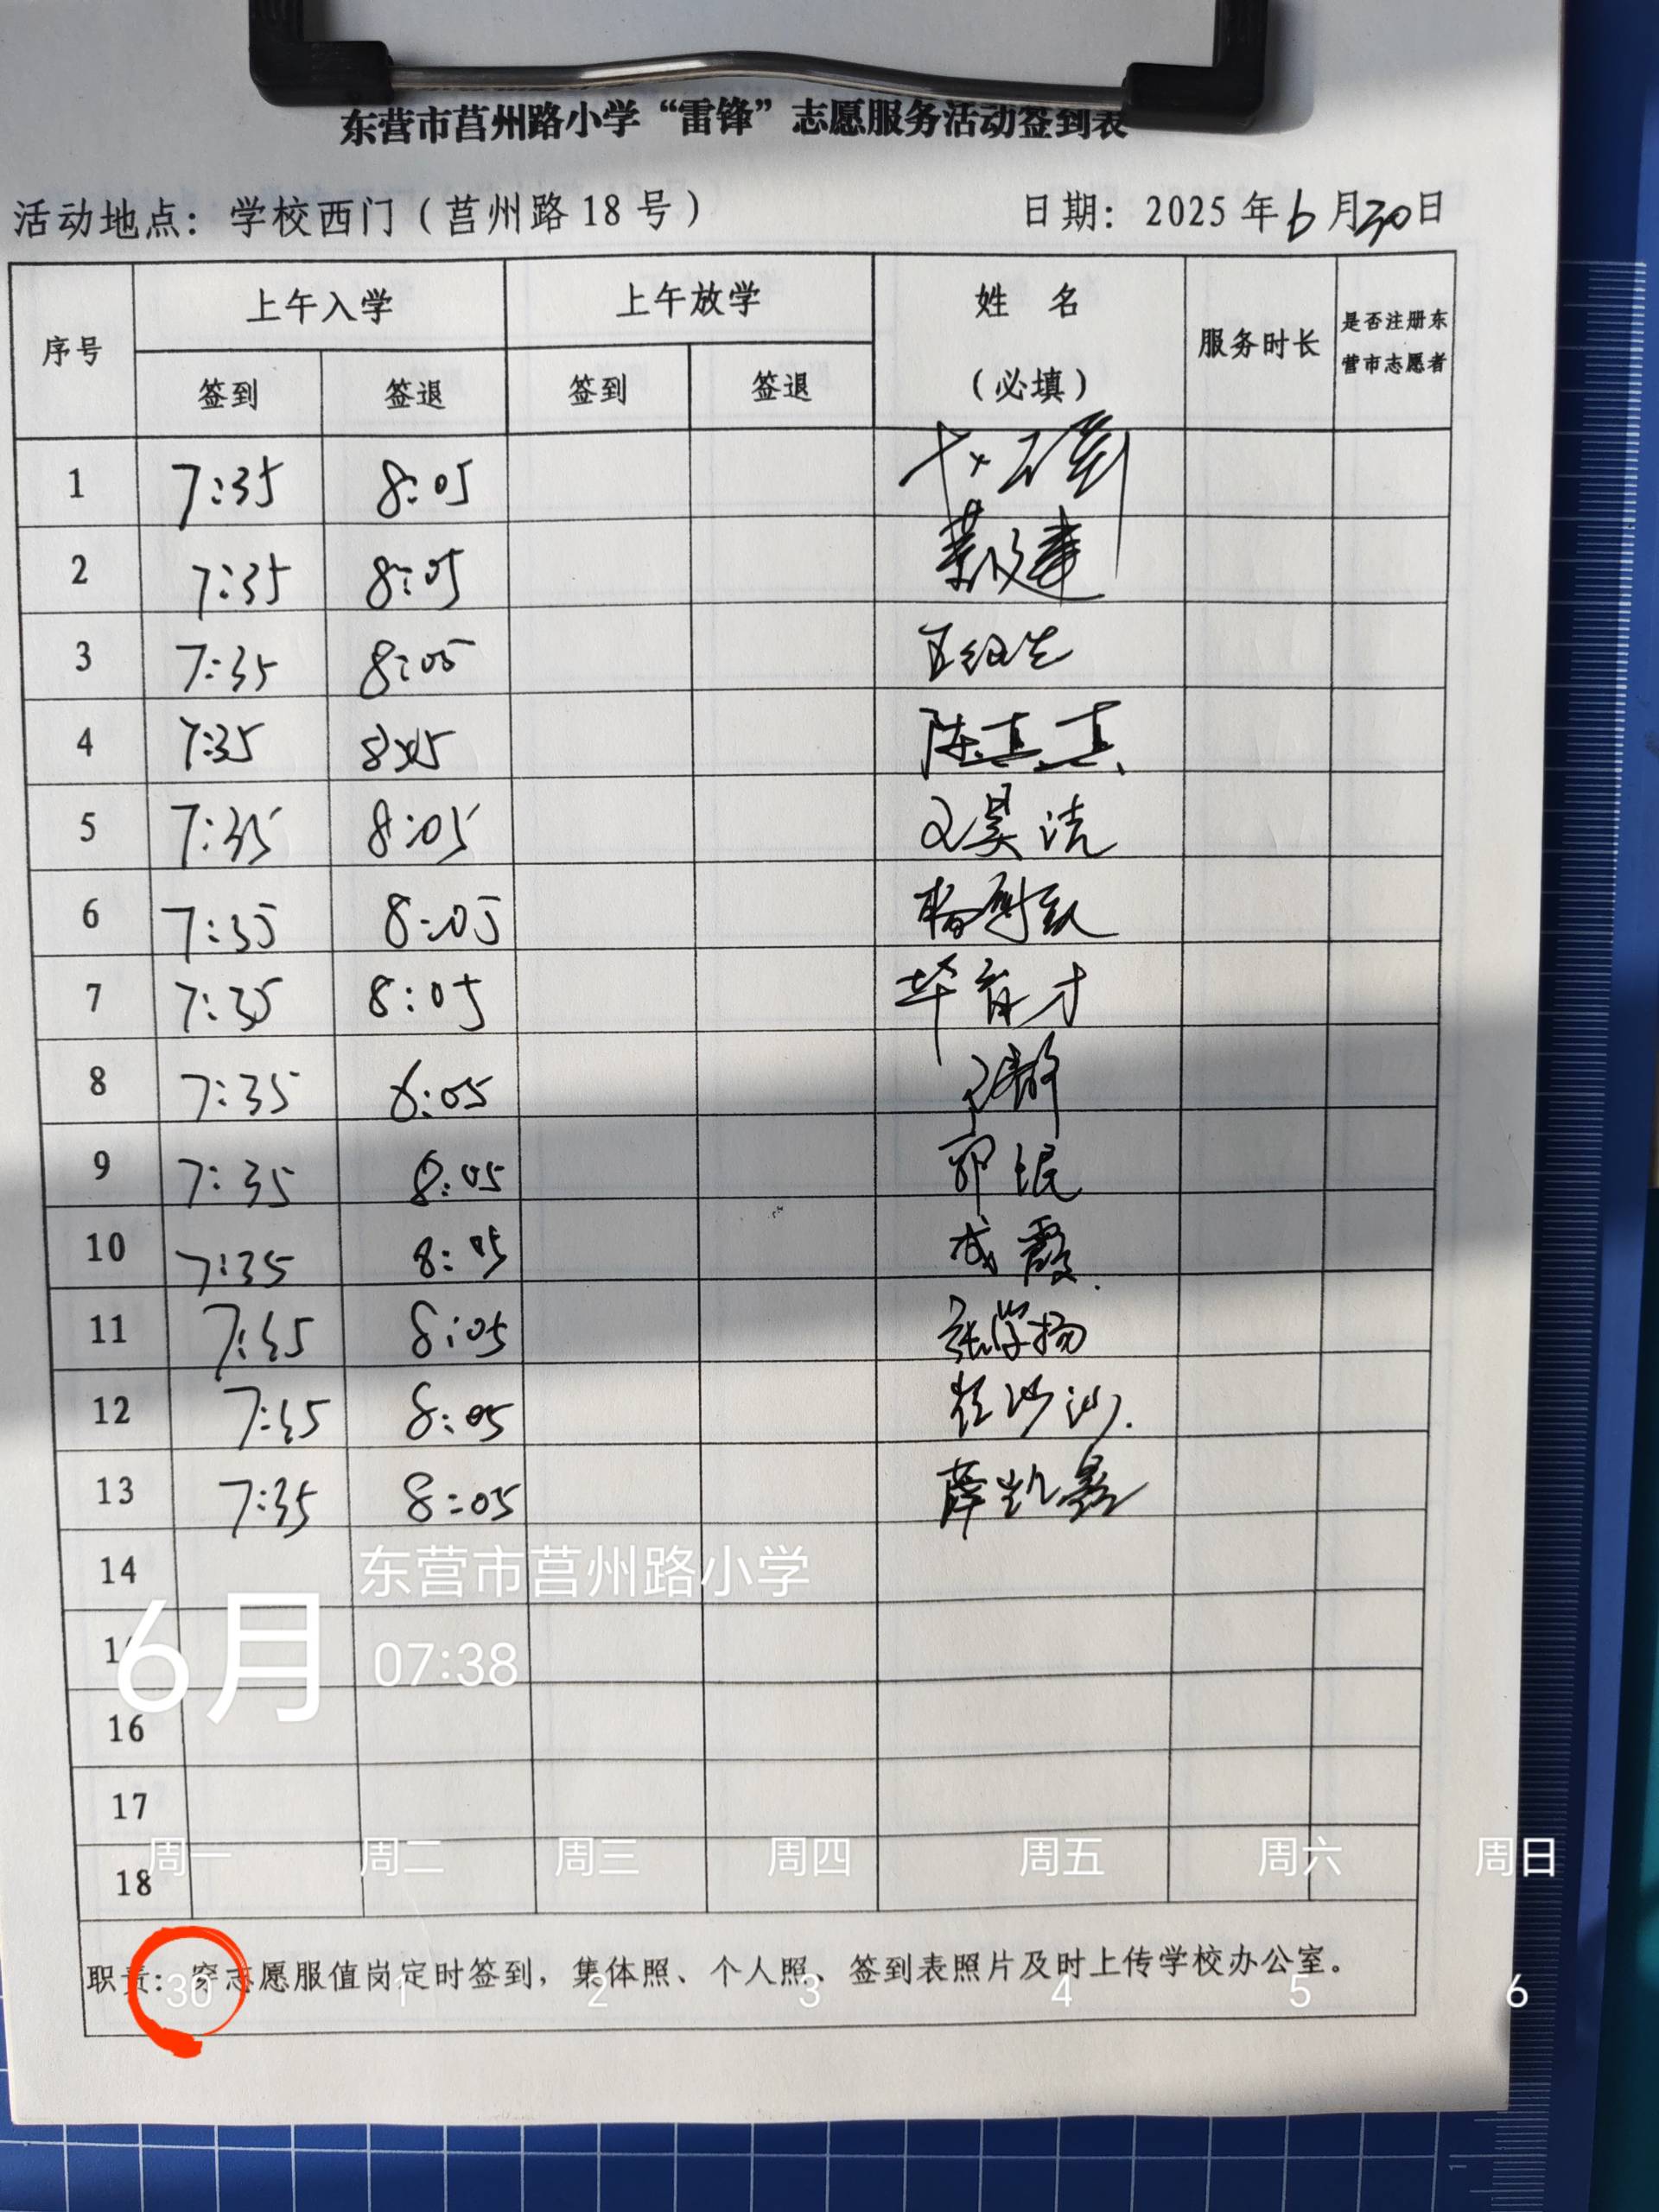 东营市莒州路小学“雷锋”志愿服务活动签到表
活动地点：学校西门（莒州路18号） 日期：2025年6月30日
序号 上午入学 上午放学 姓名 服务时长 是否注册东
营市志愿者
签到 签退 签到 签退 （必填）
1 7:35 8:05
2 7:35 8:05
3 7:35 8:05
4 7:35 8:05 陈真真
5 7:35 8:05 昊洁
6 7:35 8:05 杨
7 7:35 8:05 毕育才
8 7:35 8:05
9 7:35 8:05 郭琨
10 7:35 8:05 成霞
11 7:35 8:05 张学扬
12 7:35 8:05 崔沙沙
13 7:35 8:05 薛凯
14 东营市莒州路小学
6月
07:38
16
17
周一 周二 周三 周四 周五 周六 周日
18
职责：穿志愿服值岗定时签到，集体照、个人照、签到表照片及时上传学校办公室。
30 1 2 3 4 5 6